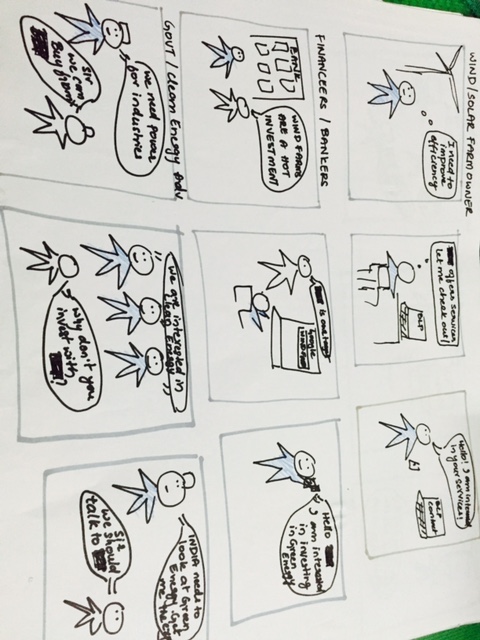 WIND/SOLAR FARM OWNER
I need to
improve
efficiency
offers services
let me check out!
DLP
Hello! I am
in your services!
DLP
contact
FINANCEERS / BANKERS
BANK
WIND FARMS
ARE A HOT
INVESTMENT
is one
Google
Hello
I am interested
in investing
in Green
Energy
GOVT / Clean Energy Adv
we need power
for industries
Sir
we can
Buy from
"We are interested in
clean Energy"
why don't you
invest with
?!
INDIA needs to
look at Green
Energy. Get
me the
Sir
we should
talk to